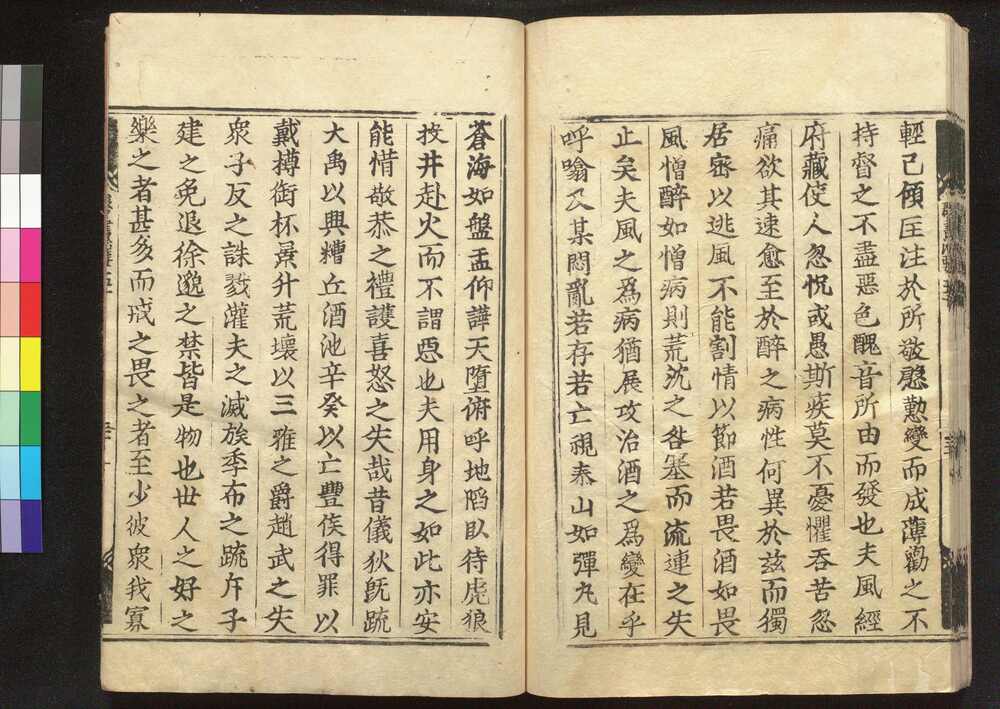 輕己傾匡注於所敬慇懃變而成薄勸之不
持督之不盡惡色醜音所由而發也夫風經
府藏使人忽怳或愚斯疾莫不憂懼吞苦忍
痛欲其速愈至於醉之病性何異於兹而獨
居密以逃風不能割情以節酒若畏酒如畏
風憎醉如憎病則荒沈之咎塞而流連之失
止矣夫風之爲病猶展攻治酒之爲變在乎
呼噏及某悶亂若存若亡視泰山如彈丸見
蒼海如盤盂仰譁天墮俯呼地陷臥待虎狼
投井赴火而不謂惡也夫用身之如此亦安
能惜敬恭之禮護喜怒之失哉昔儀狄旣疏
大禹以興糟丘酒池辛癸以亡豐侯得罪以
戴樽銜杯景升荒壞以三雅之爵趙武之失
衆子反之誅戮灌夫之滅族季布之疏斥子
建之免退徐邈之禁皆是物也世人之好之
樂之者甚多而戒之畏之者至少彼衆我寡